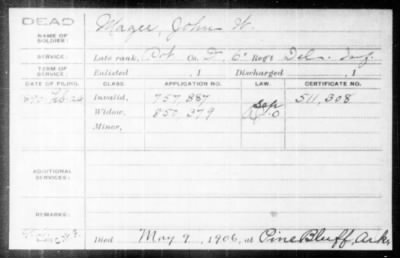 DEAD
NAME OF SOLDIER: Mager, John W.
SERVICE: Late rank, Pvt Co. D, 6" Reg't Del. Inf.
TERM OF SERVICE: Enlisted , 1 Discharged , 1
DATE OF FILING. CLASS. APPLICATION NO. LAW. CERTIFICATE NO.
Invalid, 757,887 511,308
Widow, 857,379
Minor,
ADDITIONAL SERVICES:
REMARKS:
Died May 9, 1906, at Pine Bluff, Ark.